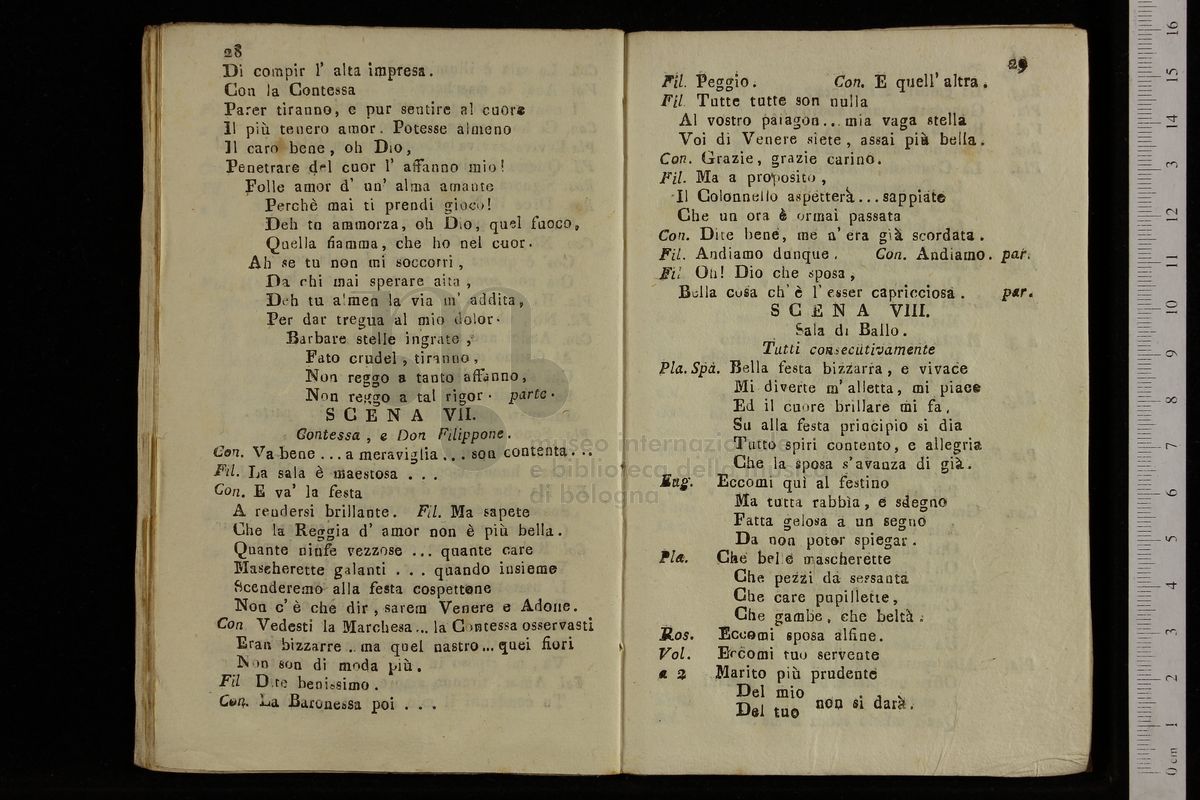 28
Di compir l' alta impresa.
Con la Contessa
Parer tiranno, e pur sentire al cuore
Il più tenero amor. Potesse almeno
Il caro bene, oh Dio,
Penetrare del cuor l' affanno mio!
Folle amor d' un' alma amante
Perchè mai ti prendi gioco!
Deh tu ammorza, oh Dio, quel fuoco,
Quella fiamma, che ho nel cuor.
Ah se tu non mi soccorri,
Da chi mai sperare aita,
Deh tu almen la via m' addita,
Per dar tregua al mio dolor.
Barbare stelle ingrate,
Fato crudel, tiranno,
Non reggo a tanto affanno,
Non reggo a tal rigor. parte.
SCENA VII.
Contessa, e Don Filippone.
Con. Va bene ... a meraviglia ... son contenta...
Fil. La sala è maestosa ...
Con. E va' la festa
A rendersi brillante. Fil. Ma sapete
Che la Reggia d' amor non è più bella.
Quante ninfe vezzose ... quante care
Mascherette galanti ... quando insieme
Scenderemo alla festa cospettone
Non c' è che dir, sarem Venere e Adone.
Con Vedesti la Marchesa... la Contessa osservasti
Eran bizzarre .. ma quel nastro... quei fiori
Non son di moda più.
Fil Dite benissimo.
Con. La Baronessa poi ...
29
Fil. Peggio. Con. E quell' altra.
Fil Tutte tutte son nulla
Al vostro paragon... mia vaga stella
Voi di Venere siete, assai più bella.
Con. Grazie, grazie carino.
Fil. Ma a proposito,
Il Colonnello aspetterà... sappiate
Che un ora è ormai passata
Con. Dite bene, me n' era già scordata.
Fil. Andiamo dunque. Con. Andiamo. par.
Fil Oh! Dio che sposa,
Bella cosa ch' è l' esser capricciosa. par.
SCENA VIII.
Sala di Ballo.
Tutti consecutivamente
Pla. Spa. Bella festa bizzarra, e vivace
Mi diverte m' alletta, mi piace
Ed il cuore brillare mi fa,
Su alla festa principio si dia
Tutto spiri contento, e allegria
Che la sposa s' avanza di già.
Eug. Eccomi quì al festino
Ma tutta rabbia, e sdegno
Fatta gelosa a un segno
Da non poter spiegar.
Pla. Che belle mascherette
Che pezzi da sessanta
Che care pupillette,
Che gambe, che beltà.
Ros. Eccomi sposa alfine.
Vol. Eccomi tuo servente
a 2 Marito più prudente
Del mio
Del tuo non si darà.
museo internazionale
e biblioteca della musica
di bologna
0 cm 1 2 3 4 5 6 7 8 9 10 11 12 13 14 15 16